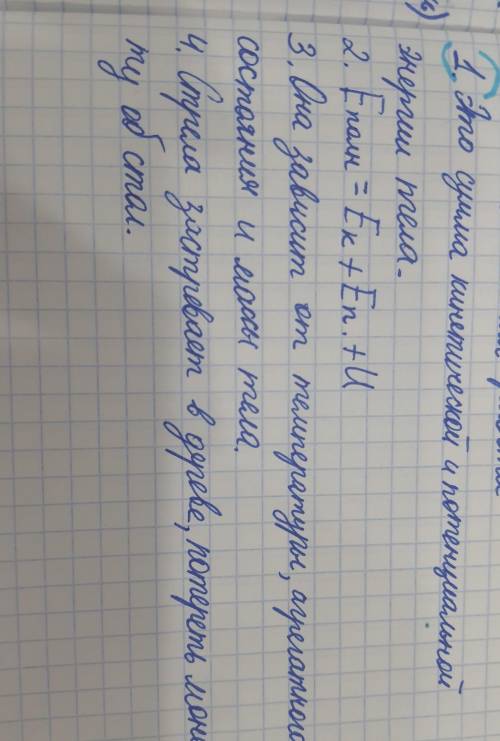 1. Это сумма кинетической и потенциальной
энергии тела.
2. Eполн = Eк + Eп. + U
3. Она зависит от температуры, агрегатного
состояния и массы тела.
4. Стрела застревает в дереве, потереть моне
ту об стол.